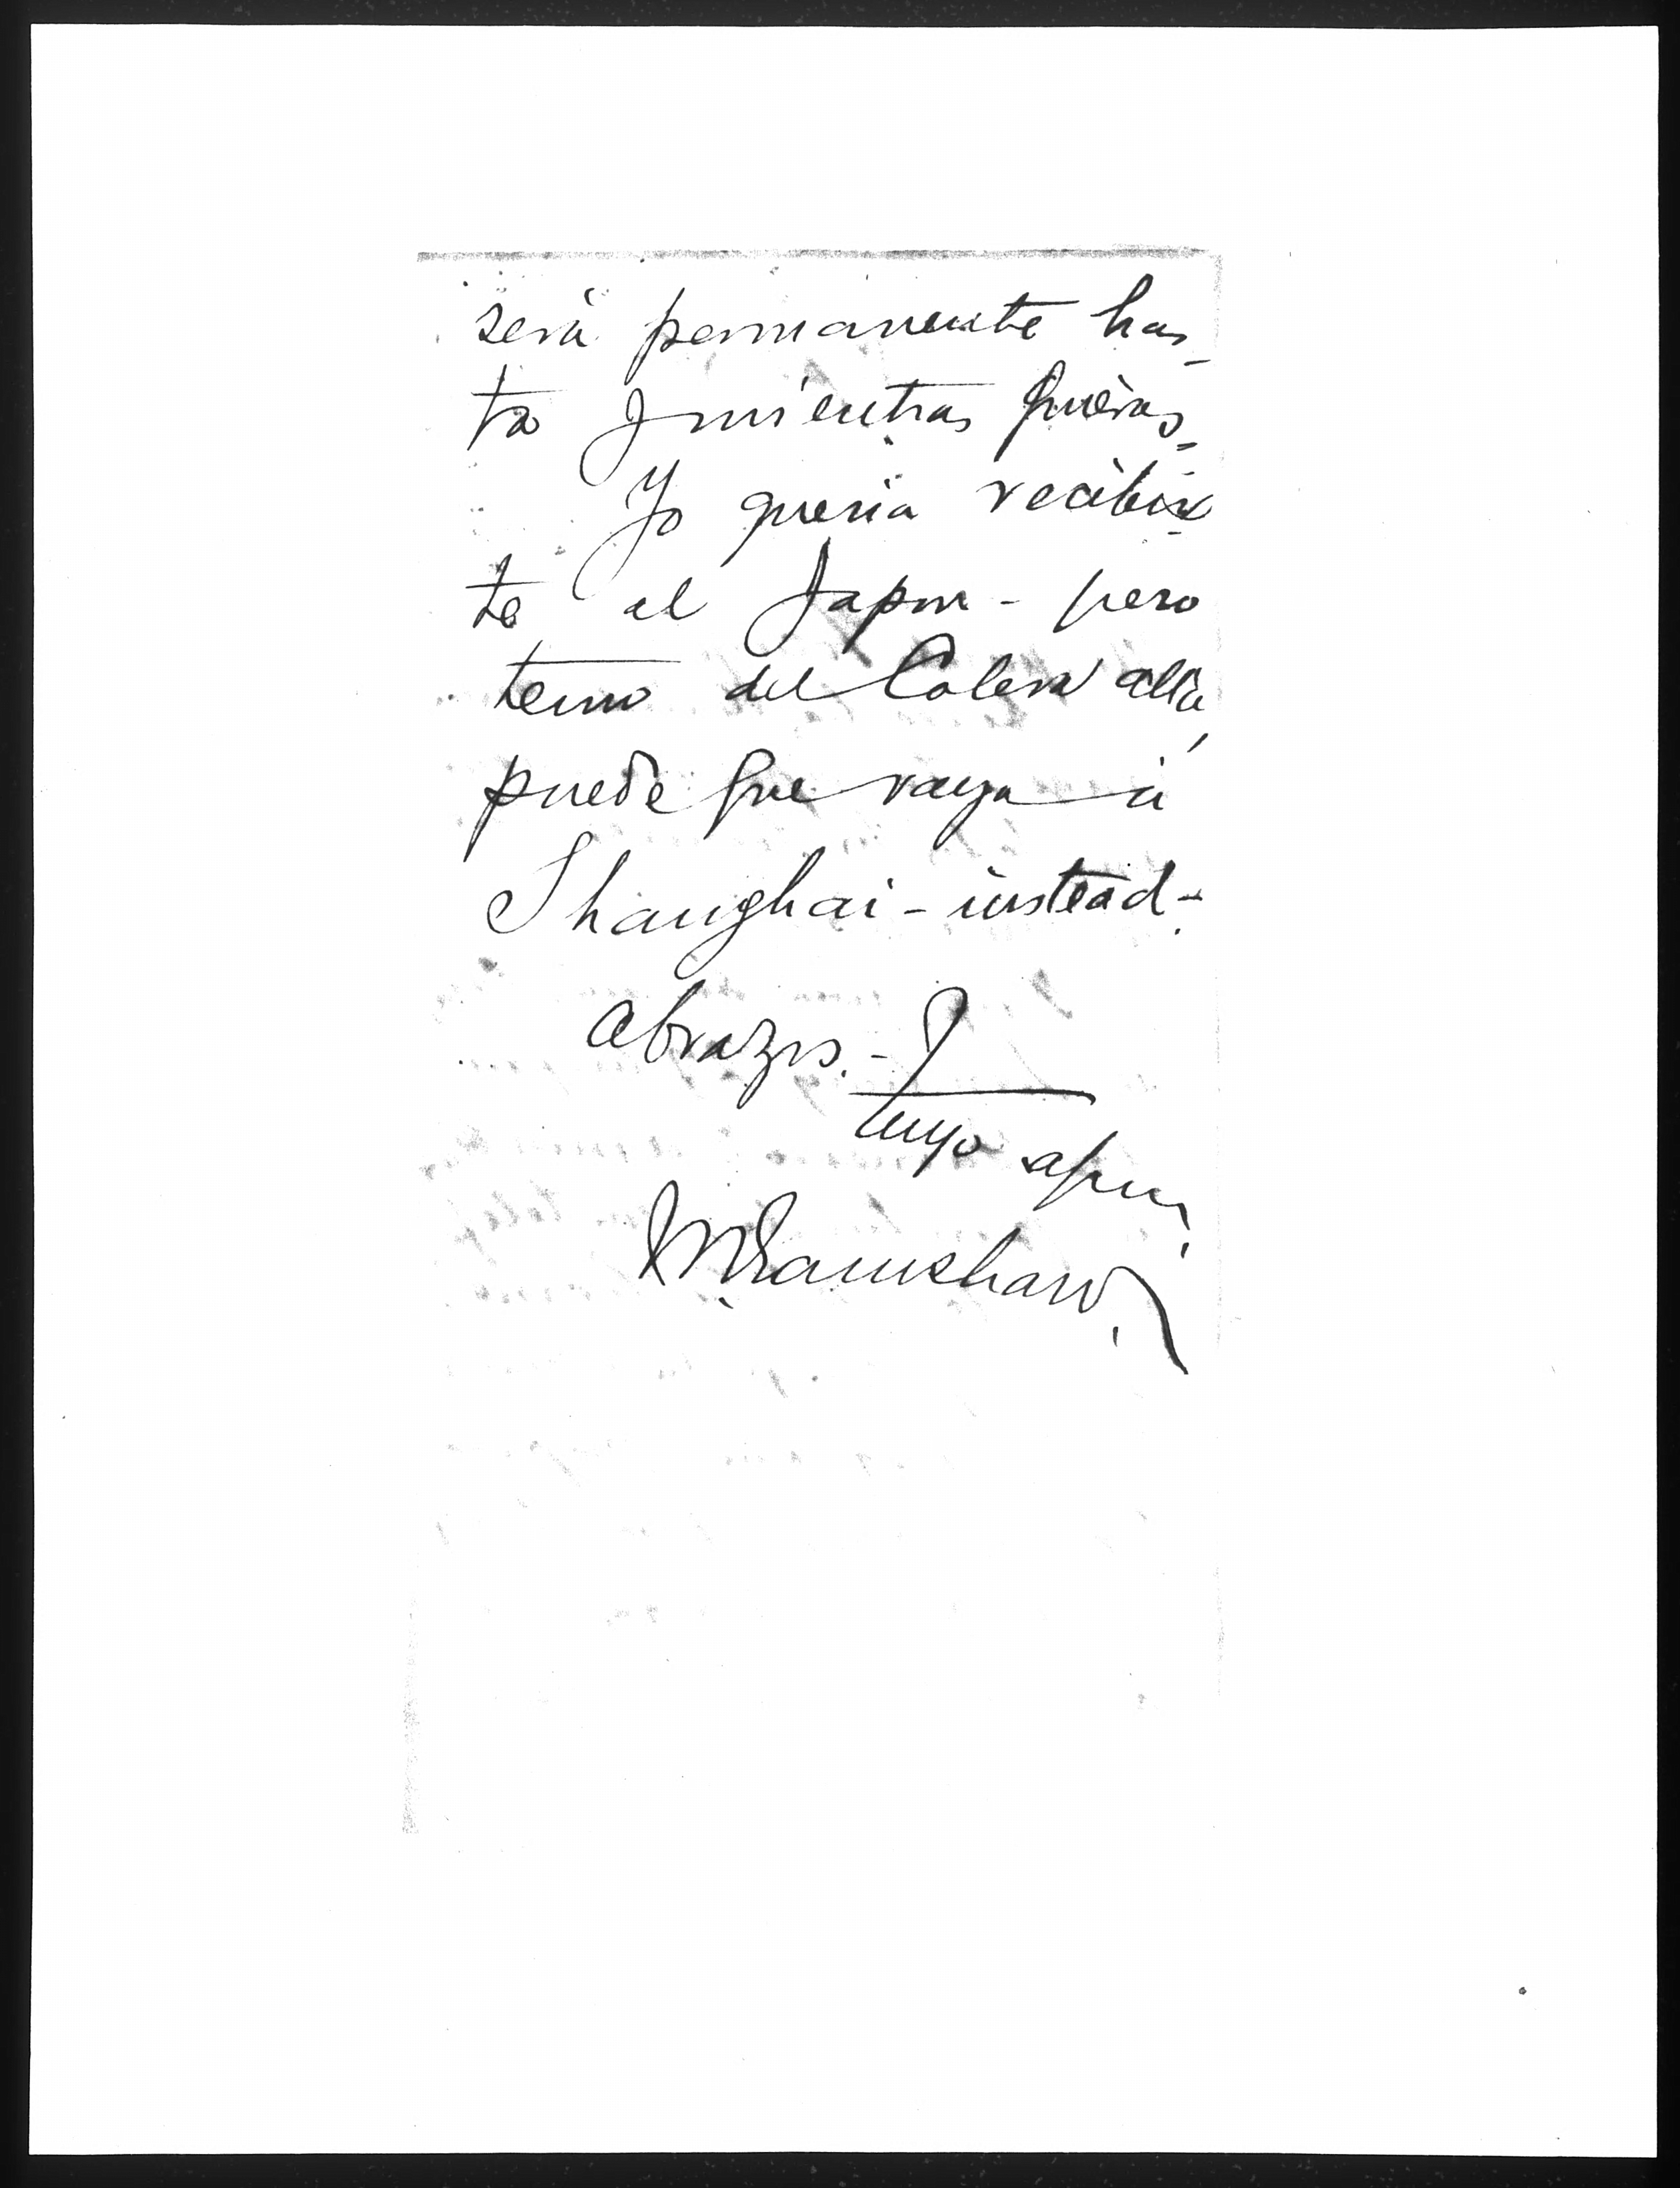 será permanente has-
ta y mientras quieras=
Yo queria recibir-
te al Japon - pero
temo del Colera allá,
puede que vaya á
Shanghai - instead -
Abrazos. -
Tuyo afmo.